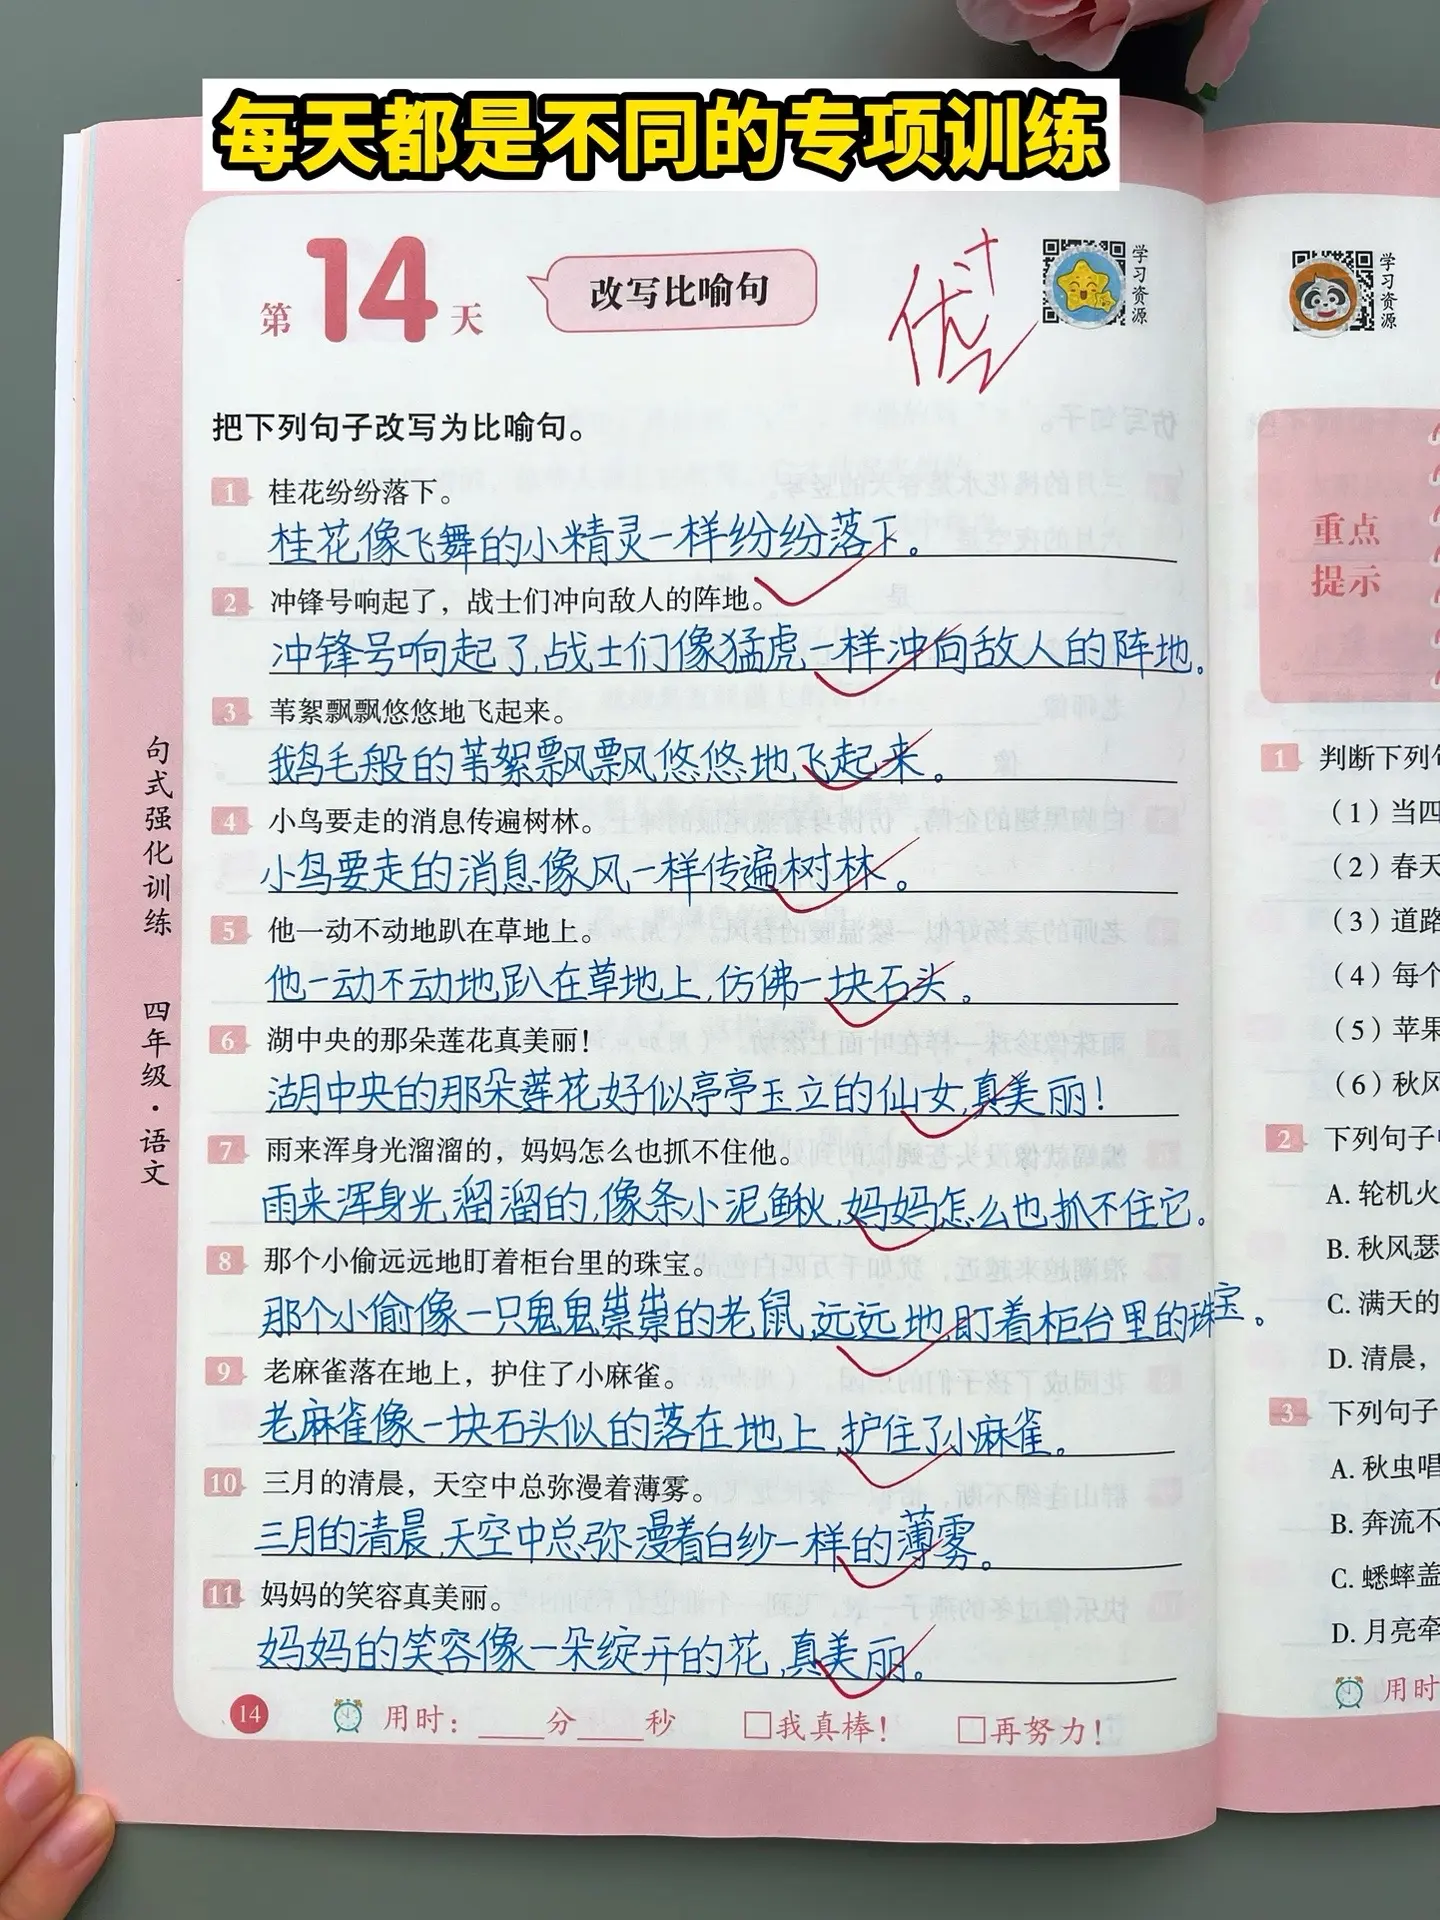 每天都是不同的专项训练
第14天
改写比喻句
优+
学习资源
学习资源
把下列句子改写为比喻句。
1 桂花纷纷落下。
桂花像飞舞的小精灵一样纷纷落下。
2 冲锋号响起了，战士们冲向敌人的阵地。
冲锋号响起了,战士们像猛虎一样冲向敌人的阵地。
3 苇絮飘飘悠悠地飞起来。
鹅毛般的苇絮飘飘悠悠地飞起来。
4 小鸟要走的消息传遍树林。
小鸟要走的消息像风一样传遍树林。
5 他一动不动地趴在草地上。
他一动不动地趴在草地上,仿佛一块石头。
6 湖中央的那朵莲花真美丽！
湖中央的那朵莲花好似亭亭玉立的仙女,真美丽!
7 雨来浑身光溜溜的，妈妈怎么也抓不住他。
雨来浑身光溜溜的,像条小泥鳅,妈妈怎么也抓不住它。
8 那个小偷远远地盯着柜台里的珠宝。
那个小偷像一只鬼鬼祟祟的老鼠,远远地盯着柜台里的珠宝。
9 老麻雀落在地上，护住了小麻雀。
老麻雀像一块石头似的落在地上,护住了小麻雀。
10 三月的清晨，天空中总弥漫着薄雾。
三月的清晨,天空中总弥漫着白纱一样的薄雾。
11 妈妈的笑容真美丽。
妈妈的笑容像一朵绽开的花,真美丽。
14 用时：____分____秒 □我真棒！ □再努力！
句式强化训练 四年级·语文
重点
提示
1 判断下列句
（1）当四
（2）春天
（3）道路
（4）每个
（5）苹果
（6）秋风
2 下列句子中
A. 轮机火
B. 秋风瑟
C. 满天的
D. 清晨，
3 下列句子
A. 秋虫唱
B. 奔流不
C. 蟋蟀盖
D. 月亮牵
用时